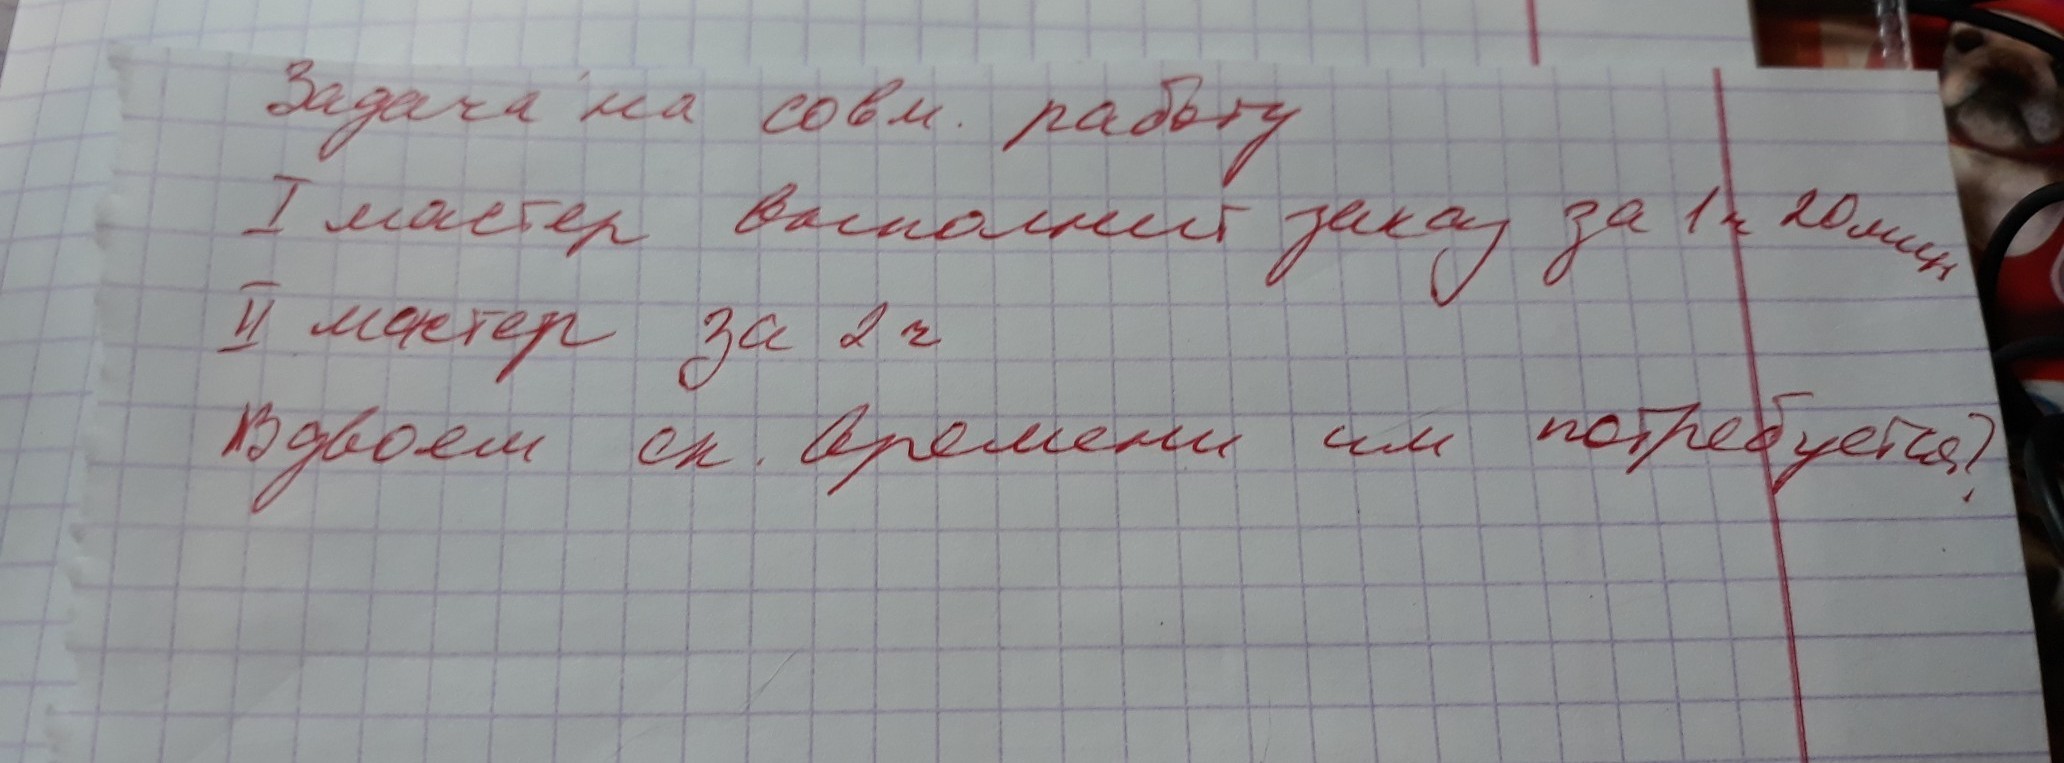 Задача на совм. работу
I мастер выполнит заказ за 1ч 20мин
II мастер за 2 ч
Вдвоем ск. времени им потребуется?